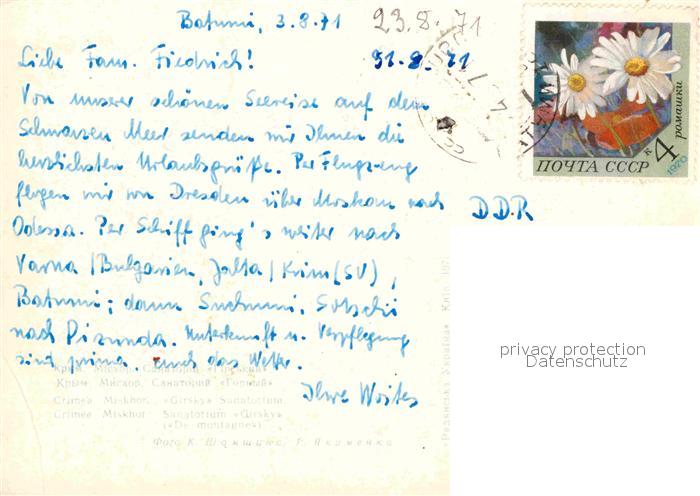 Batumi, 3.8.71
23.8.71
Liebe Fam. Friedrich!
31.8.71
Von unserer schönen Seereise auf dem
Schwarzen Meer senden wir Ihnen die
herzlichsten Urlaubsgrüße. Per Flugzeug
flogen wir von Dresden über Moskau nach
DDR
Odessa. Per Schiff ging's weiter nach
Varna/Bulgarien, Jalta/Krim(SU),
Batumi; dann Suchumi, Sotschi
nach Pizunda. Unterkunft u. Verpflegung
sind prima, auch das Wetter.
Ihre
ромашки
4 к
1970
ПОЧТА СССР
Крым. Мисхор. Санаторий «Горький»
Крим. Місхор. Санаторій «Гірський»
Crimea Miskhor. «Girsky» Sanatorium
Crimée Miskhor Sanatorium «Girsky»
(«De montagne»)
Фото К. Шамшина, Р. Якименко
«Радянська Україна» Київ 197
privacy protection
Datenschutz